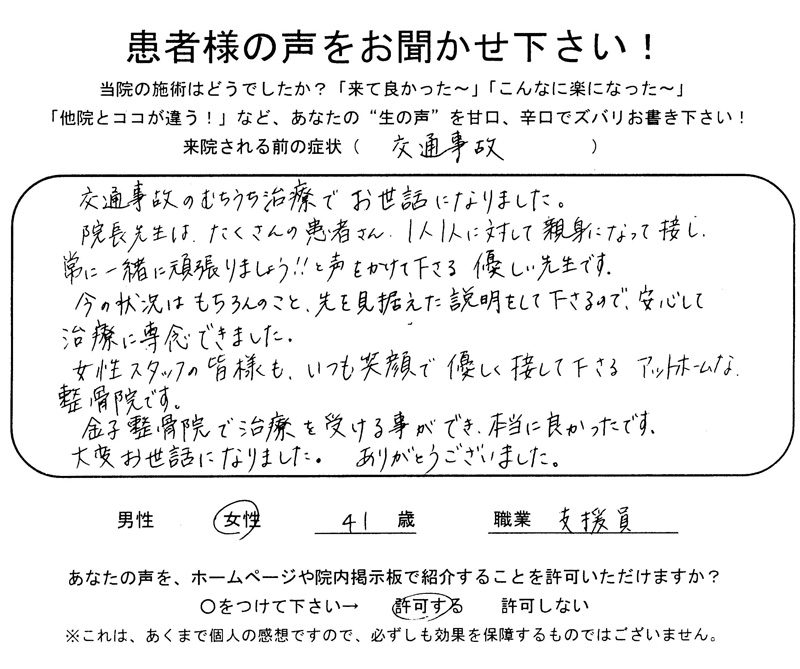 患者様の声をお聞かせ下さい!
当院の施術はどうでしたか?「来て良かった〜」「こんなに楽になった〜」
「他院とココが違う!」など、あなたの“生の声”を甘口、辛口でズバリお書き下さい!
来院される前の症状( 交通事故 )
交通事故のむちうち治療で お世話になりました。
院長先生は、たくさんの患者さん、1人1人に対して親身になって接し、
常に一緒に頑張りましょう!!と声をかけて下さる 優しい先生です。
今の状況はもちろんのこと、先を見据えた説明をして下さるので、安心して
治療に専念できました。
女性スタッフの皆様も、いつも笑顔で優しく接して下さる アットホームな、
整骨院です。
金子整骨院で治療を受ける事ができ、本当に良かったです、
大変お世話になりました。 ありがとうございました。
男性 女性 41 歳 職業 支援員
あなたの声を、ホームページや院内掲示板で紹介することを許可いただけますか?
○をつけて下さい→ 許可する 許可しない
※これは、あくまで個人の感想ですので、必ずしも効果を保障するものではございません。